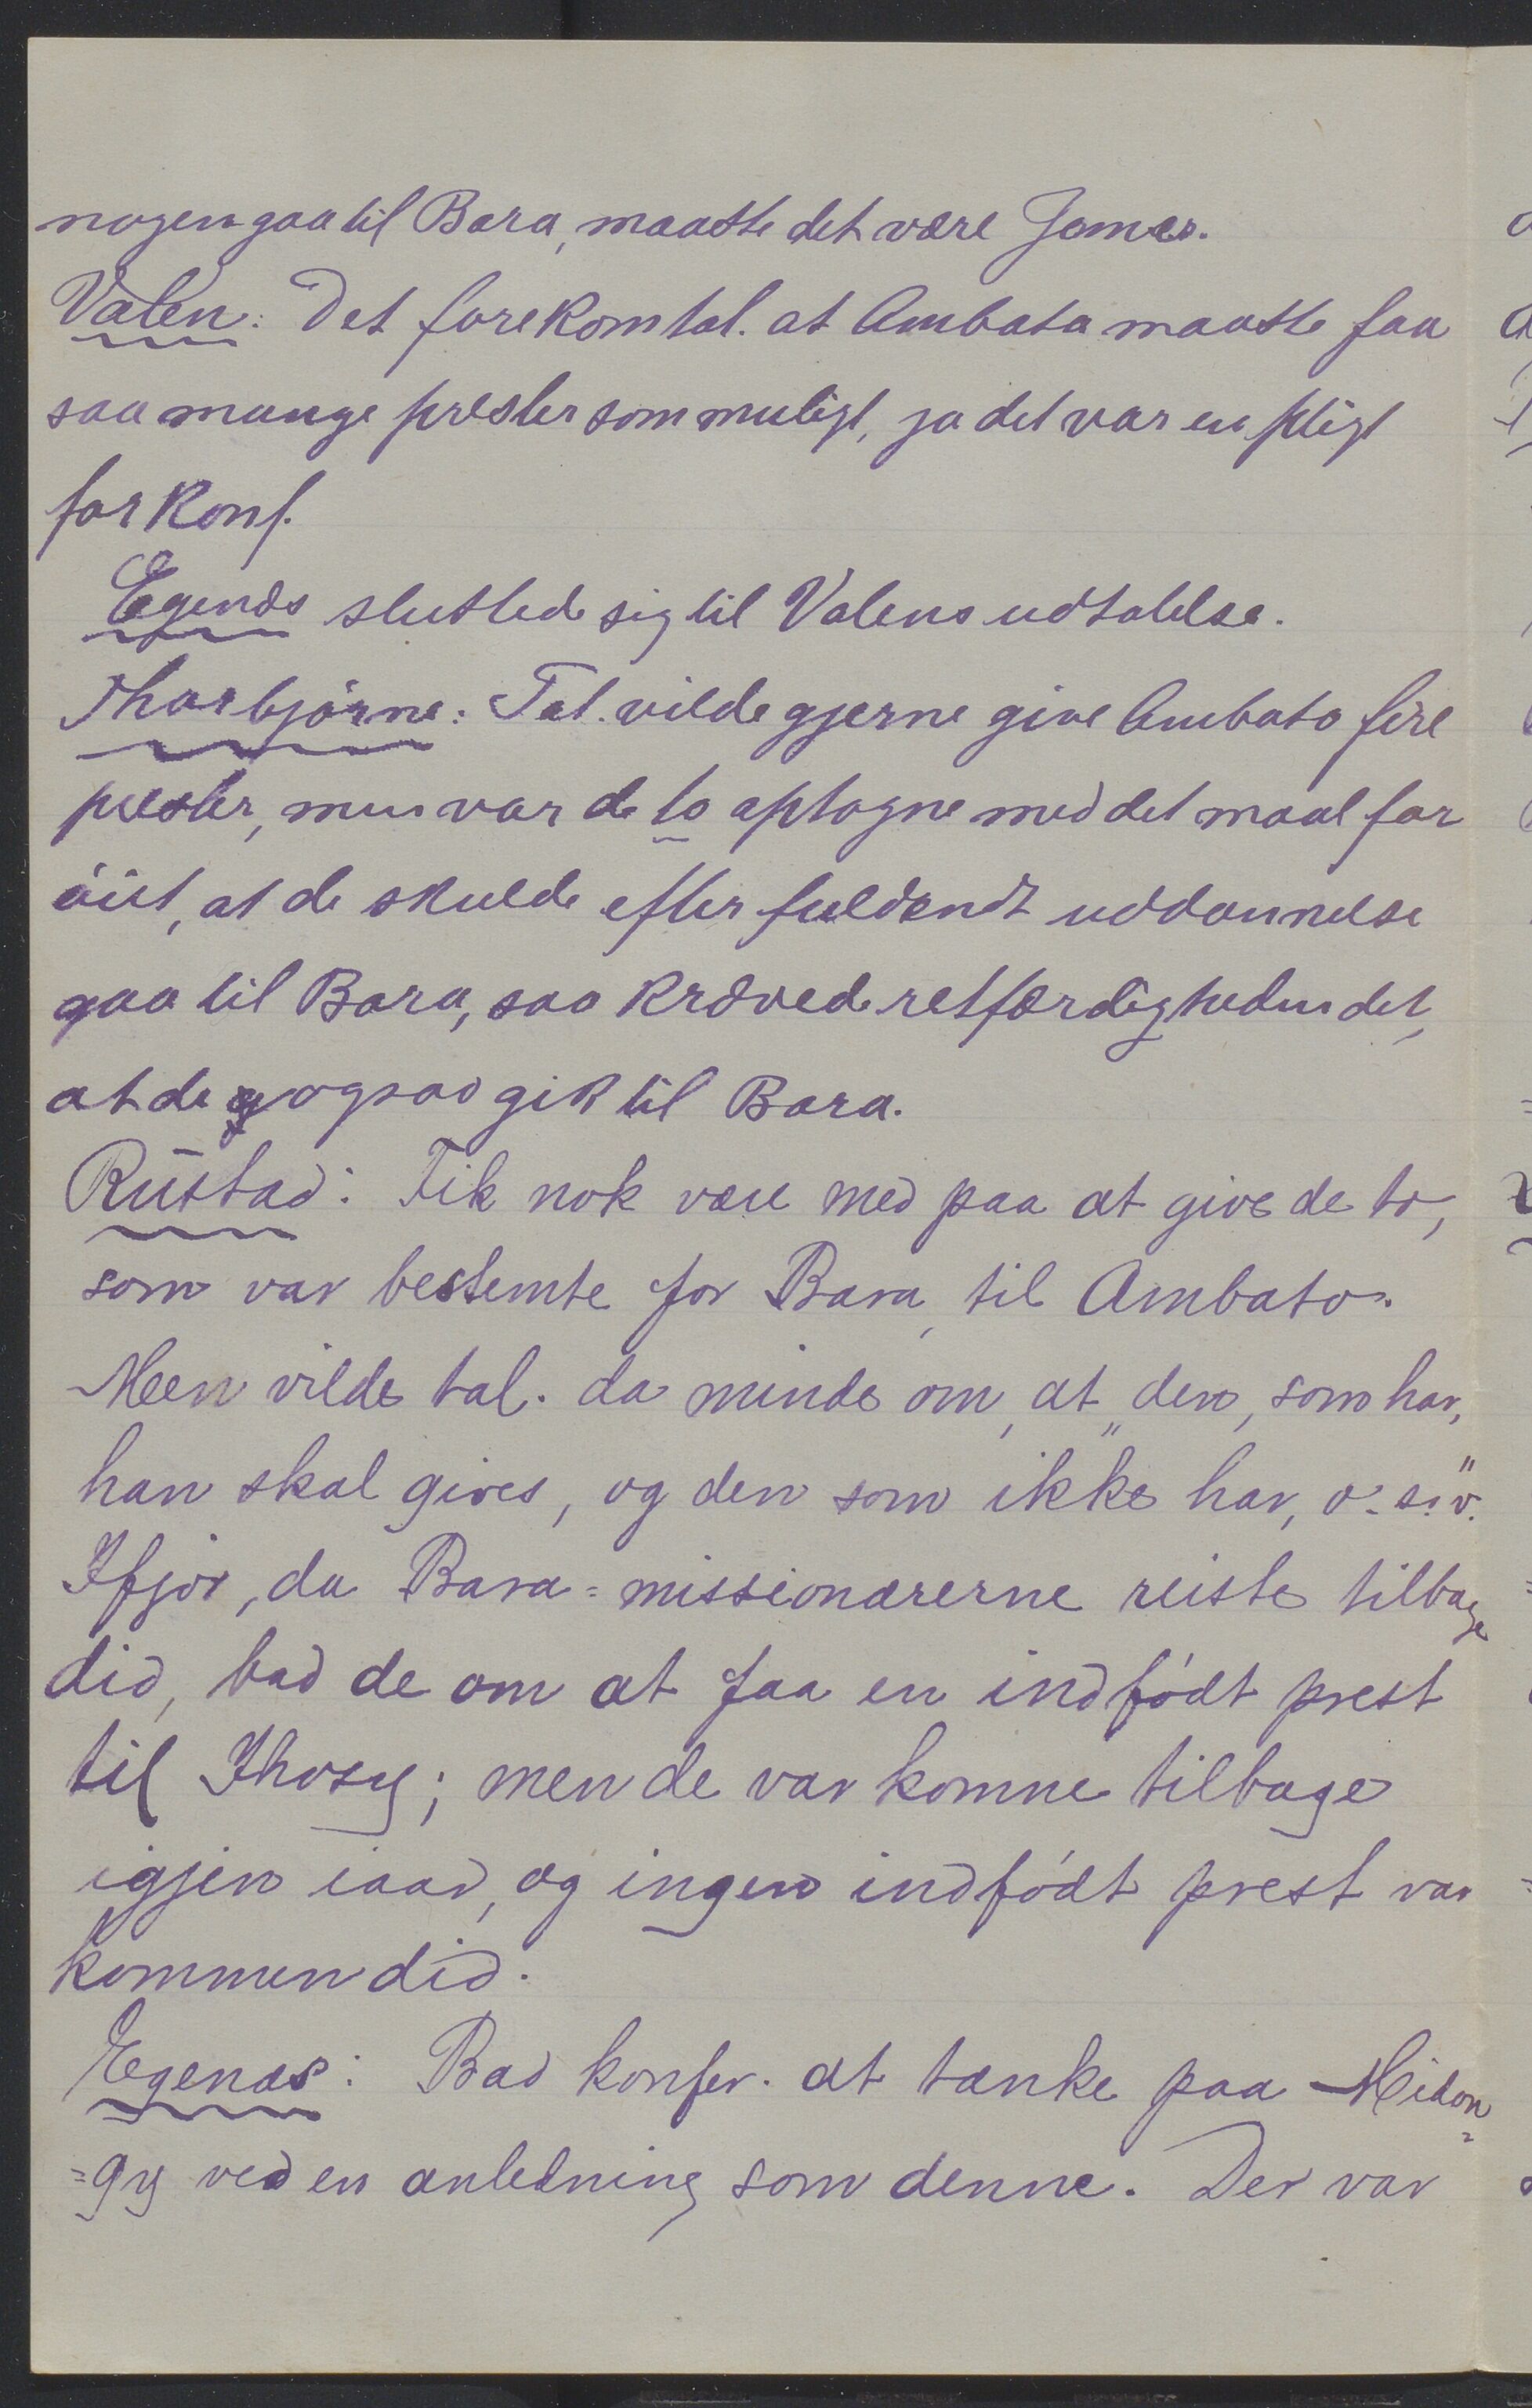 nogen gaa til Bara, maatte det være James.
Valen: Det forekom tal. at Ambato maatte faa
saa mange prester som muligt, ja det var en pligt
for konf.
Egenæs sluttede sig til Valens udtalelse.
Thorbjørns: Tal. vilde gjerne give Ambato fire
prester, men var de to optagne med det maal for
öiet, at de skulde efter fuldendt uddannelse
gaa til Bara, saa krævede retfærdigheden det,
at de ogsaa gik til Bara.
Rustad: Fik nok være med paa at give de to,
som var bestemte for Bara, til Ambato.
Men vilde tal. da minde om, at "den, som har,
han skal gives, og den som ikke har, o. s. v."
Ifjor, da Bara=missionærerne reiste tilbage
did, bad de om at faa en indfödt prest
til Ihosy; men de var komne tilbage
igjen iaar, og ingen indfödt prest var
kommen did.
Egenæs: Bad konfer. at tænke paa Midon=
=gy ved en anledning som denne. Der var